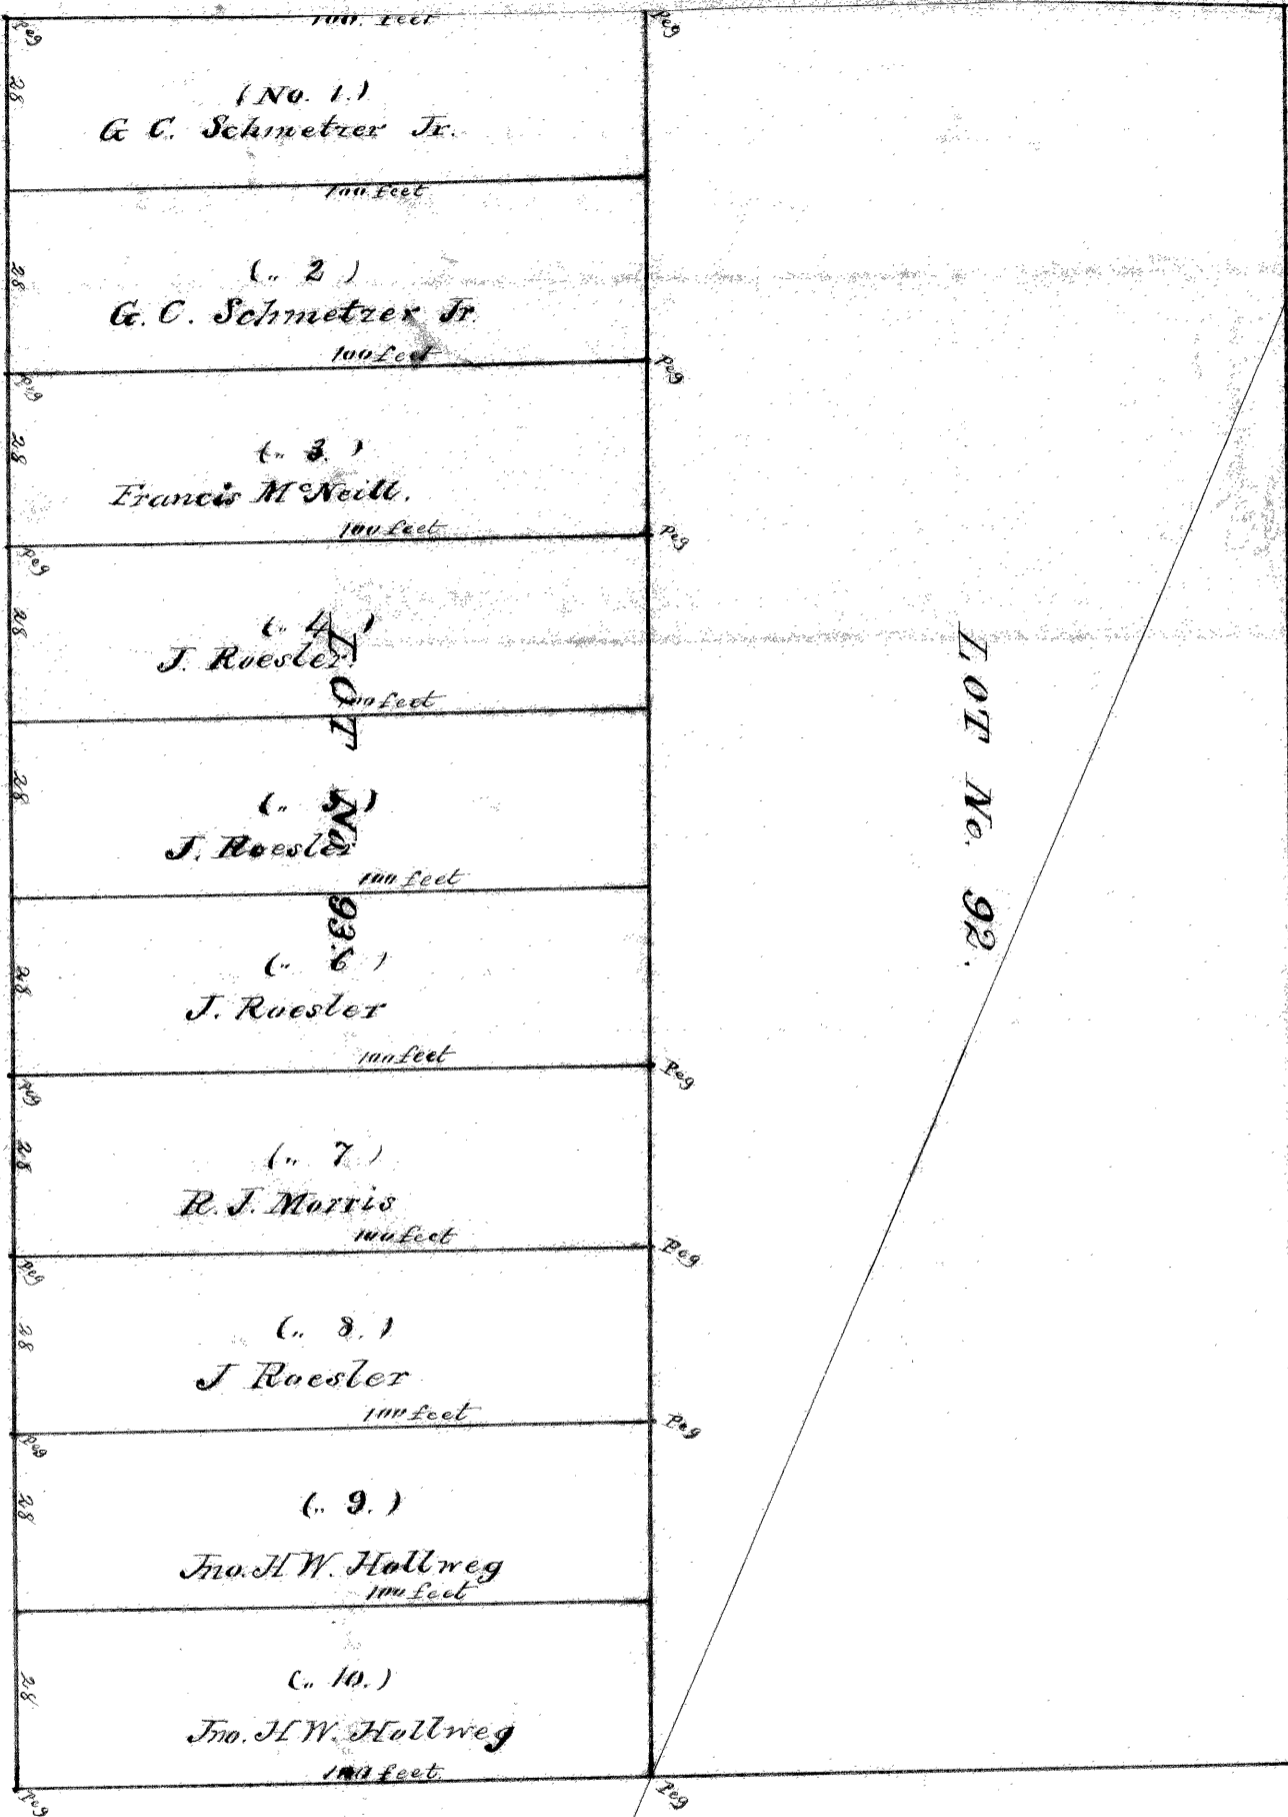 100. feet
Peg
Peg
28
(No. 1.)
G C. Schmetzer Jr.
100 feet
28
(„ 2 )
G. C. Schmetzer Jr
100 feet
Peg
Peg
28
(„ 3. )
Francis McNeill.
100 feet
Peg
Peg
28
(„ 4 )
J. Roesler.
100 feet
28
(„ 5 )
J. Roesler
100 feet
28
(„ 6 )
J. Roesler
100 feet
Peg
Peg
28
(„ 7 )
R. J. Morris
100 feet
Peg
Peg
28
(„ 8. )
J Roesler
100 feet
Peg
Peg
28
(„ 9. )
Jno. H W. Hollweg
100 feet
28
(„ 10.)
Jno. H W. Hollweg
100 feet.
Peg
Peg
LOT No. 93.
LOT No. 92.